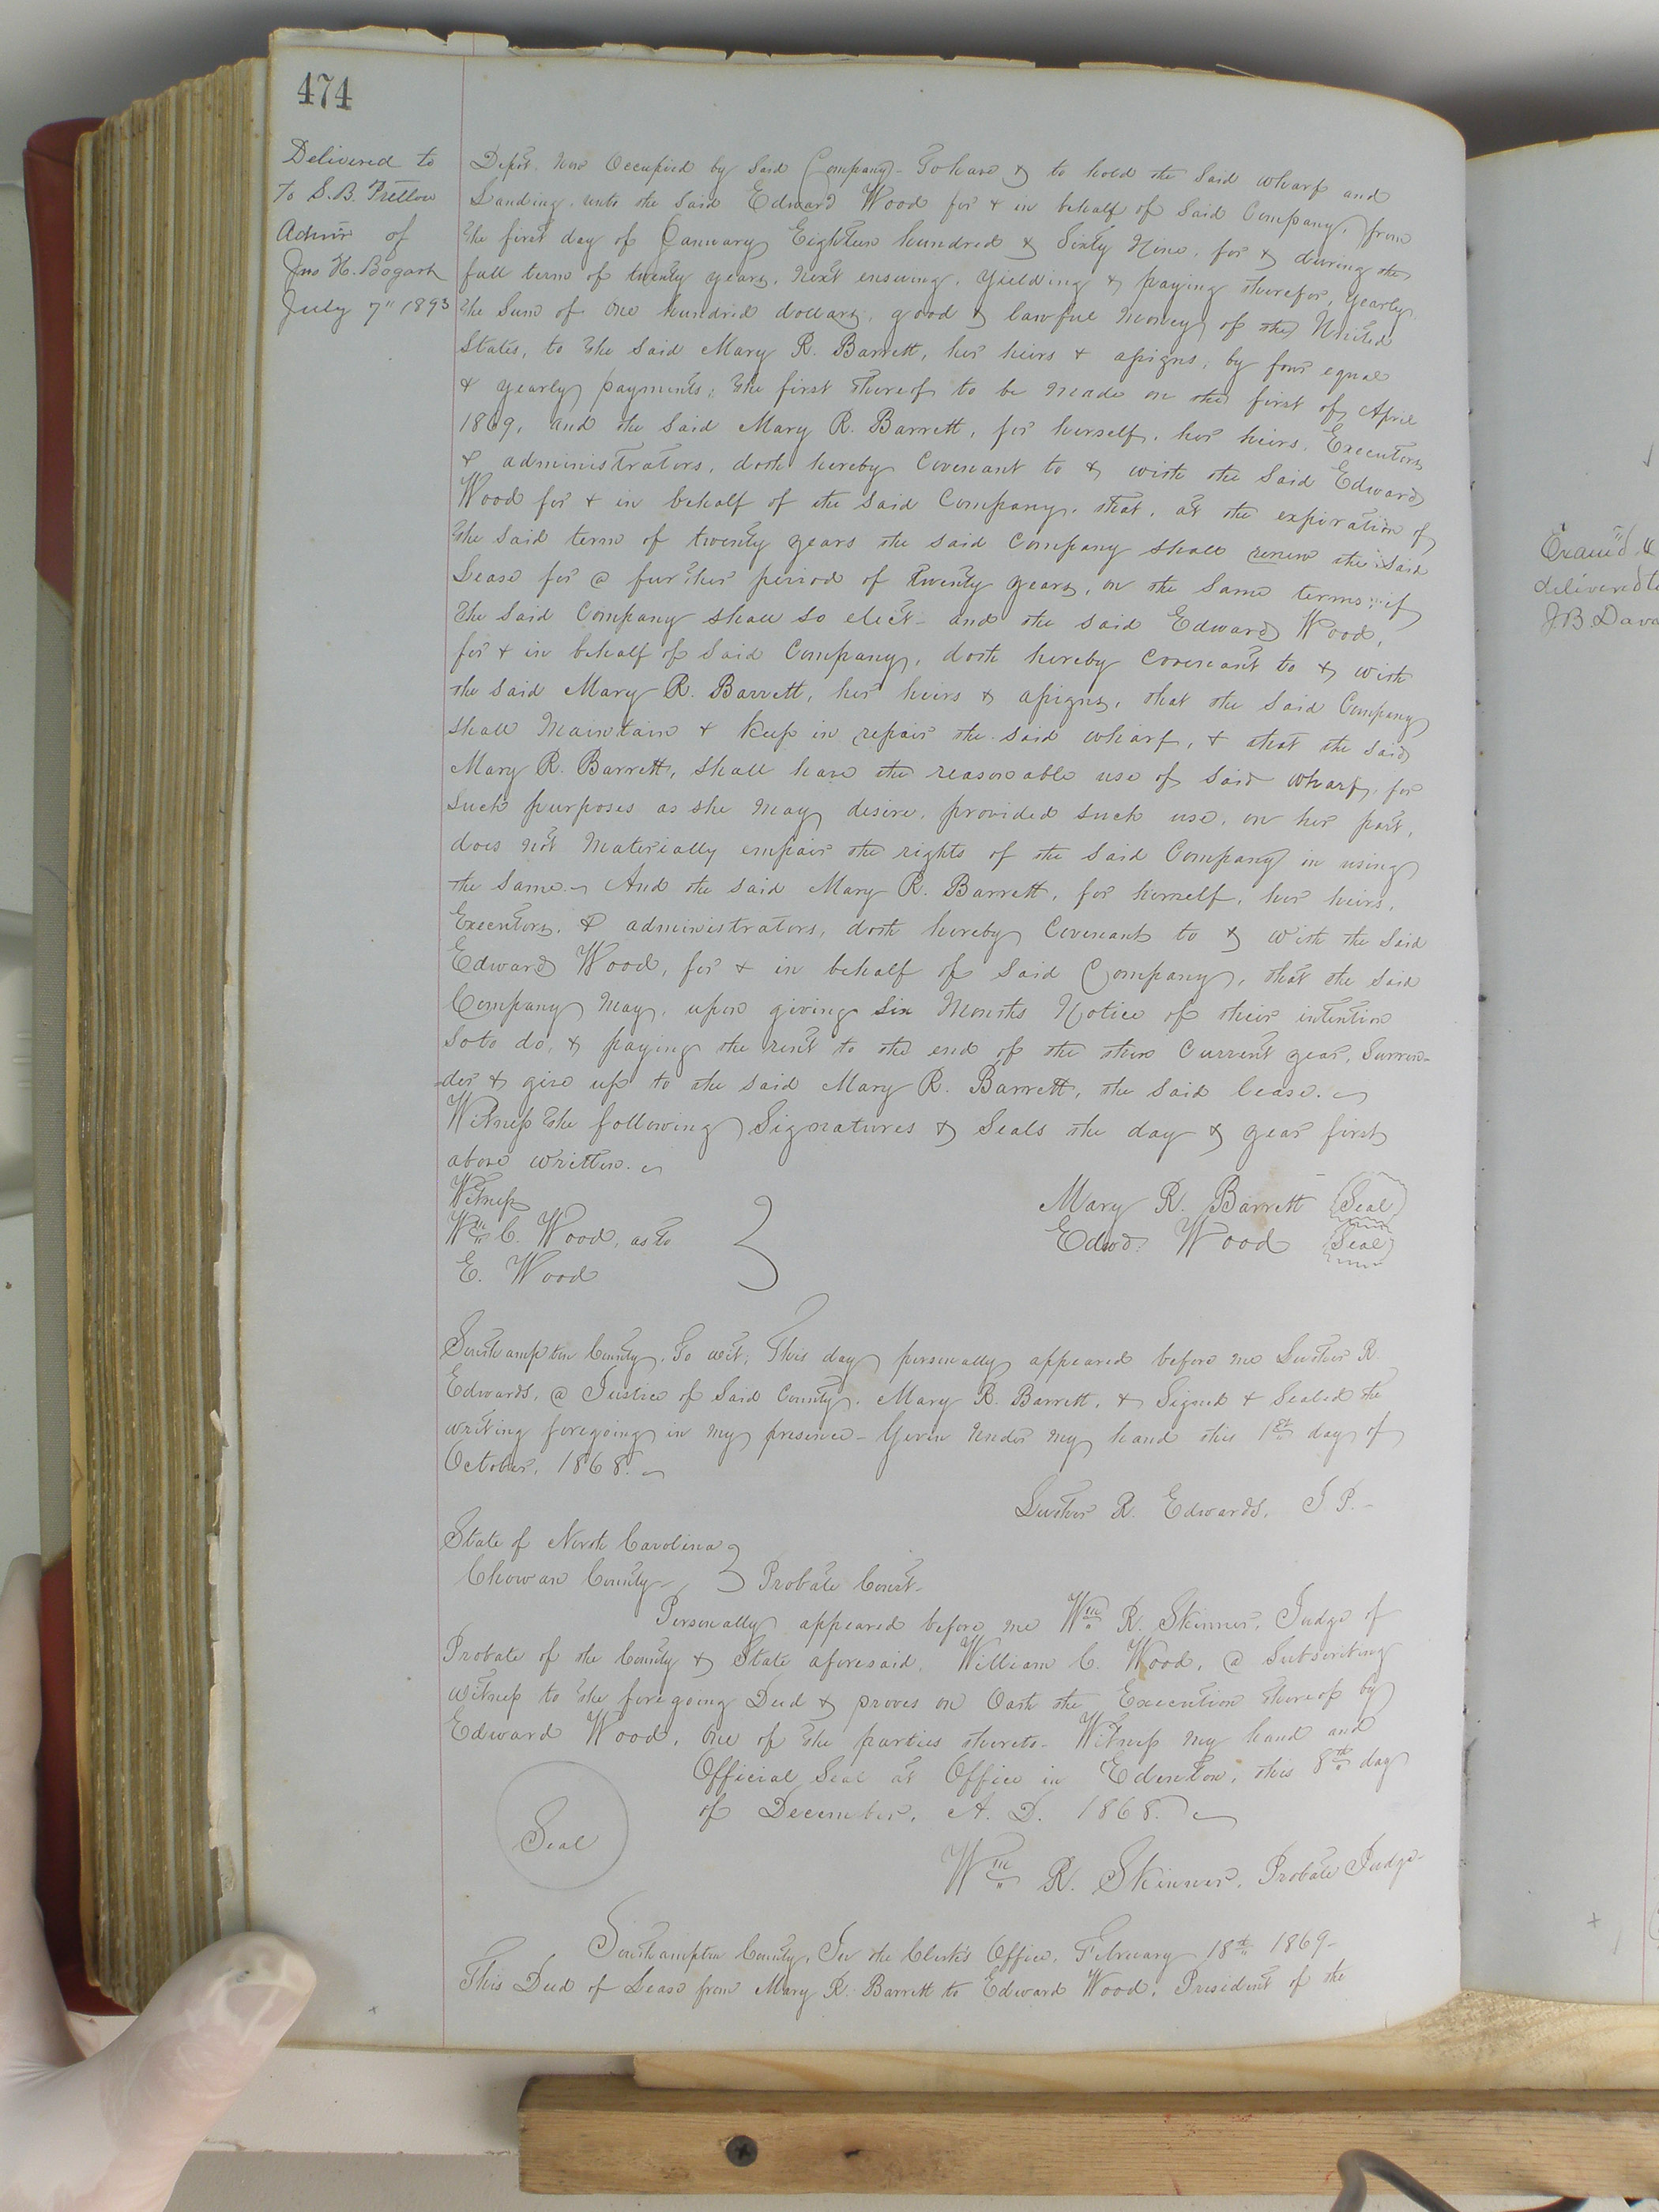 474
Delivered to
to S.B. Pretlow
Admr of
Jno H. Bogart
July 7" 1893
Depot. Now Occupied by Said Company - To have & to hold the Said wharf and
Landing. unto the Said Edward Wood for & in behalf of Said Company, from
the first day of January Eighteen hundred & Sixty Nine, for & during the
full term of twenty years, next ensuing, yielding & paying therefor, yearly,
the Sum of One hundred dollars, good & lawful Money of the United
States, to the Said Mary R. Barrett, her heirs & assigns, by four equal
& yearly payments; the first thereof to be made on the first of April
1869, and the Said Mary R. Barrett, for herself, her heirs, Executors
& administrators, doth hereby Covenant to & with the Said Edward
Wood for & in behalf of the Said Company, that, at the expiration of
the Said term of twenty years the Said Company shall renew the Said
Lease for @ further period of twenty years, on the Same terms; if
the Said Company shall so elect - and the said Edward Wood,
for & in behalf of Said Company, doth hereby Covenant to & with
the Said Mary R. Barrett, her heirs & assigns, that the Said Company
shall Maintain & Keep in repair the said wharf, & that the said
Mary R. Barrett, shall have the reasonable use of Said wharf, for
Such purposes as she May desire, provided such use, on her part,
does not Materially empair the rights of the Said Company in using
the Same. And the Said Mary R. Barrett, for herself, her heirs,
Executors, & administrators, doth hereby Covenant to & with the Said
Edward Wood, for & in behalf of Said Company, that the Said
Company May, upon giving Six Months Notice of their intention
So to do, & paying the rent to the end of the then Current year, Surren-
-der & give up to the Said Mary R. Barrett, the Said lease.
Witness the following Signatures & Seals the day & year first
above written.
Witness
Wm C. Wood, as to
E. Wood
Mary R. Barrett (Seal)
Edwd. Wood (Seal)
Southampton County, To wit; This day personally appeared before me Luther R.
Edwards, @ Justice of Said County, Mary R. Barrett, & Signed & Sealed the
writing foregoing in my presence - Given Under My hand this 1st day of
October, 1868.
Luther R. Edwards, J. P. -
State of North Carolina
Chowan County - Probate Court -
Personally appeared before me Wm R. Skinner, Judge of
Probate of the County & State aforesaid, William C. Wood, @ Subscribing
witness to the foregoing Deed & proves on Oath the Execution thereof by
Edward Wood, One of the parties thereto - Witness my hand and
Official Seal at Office in Edenton, this 8th day
of December, A. D. 1868.
Seal
Wm R. Skinner, Probate Judge -
Southampton County, In the Clerk's Office, February 18th 1869 -
This Deed of Lease from Mary R. Barrett to Edward Wood, President of the
Exam'd &
delivered to
J. B.